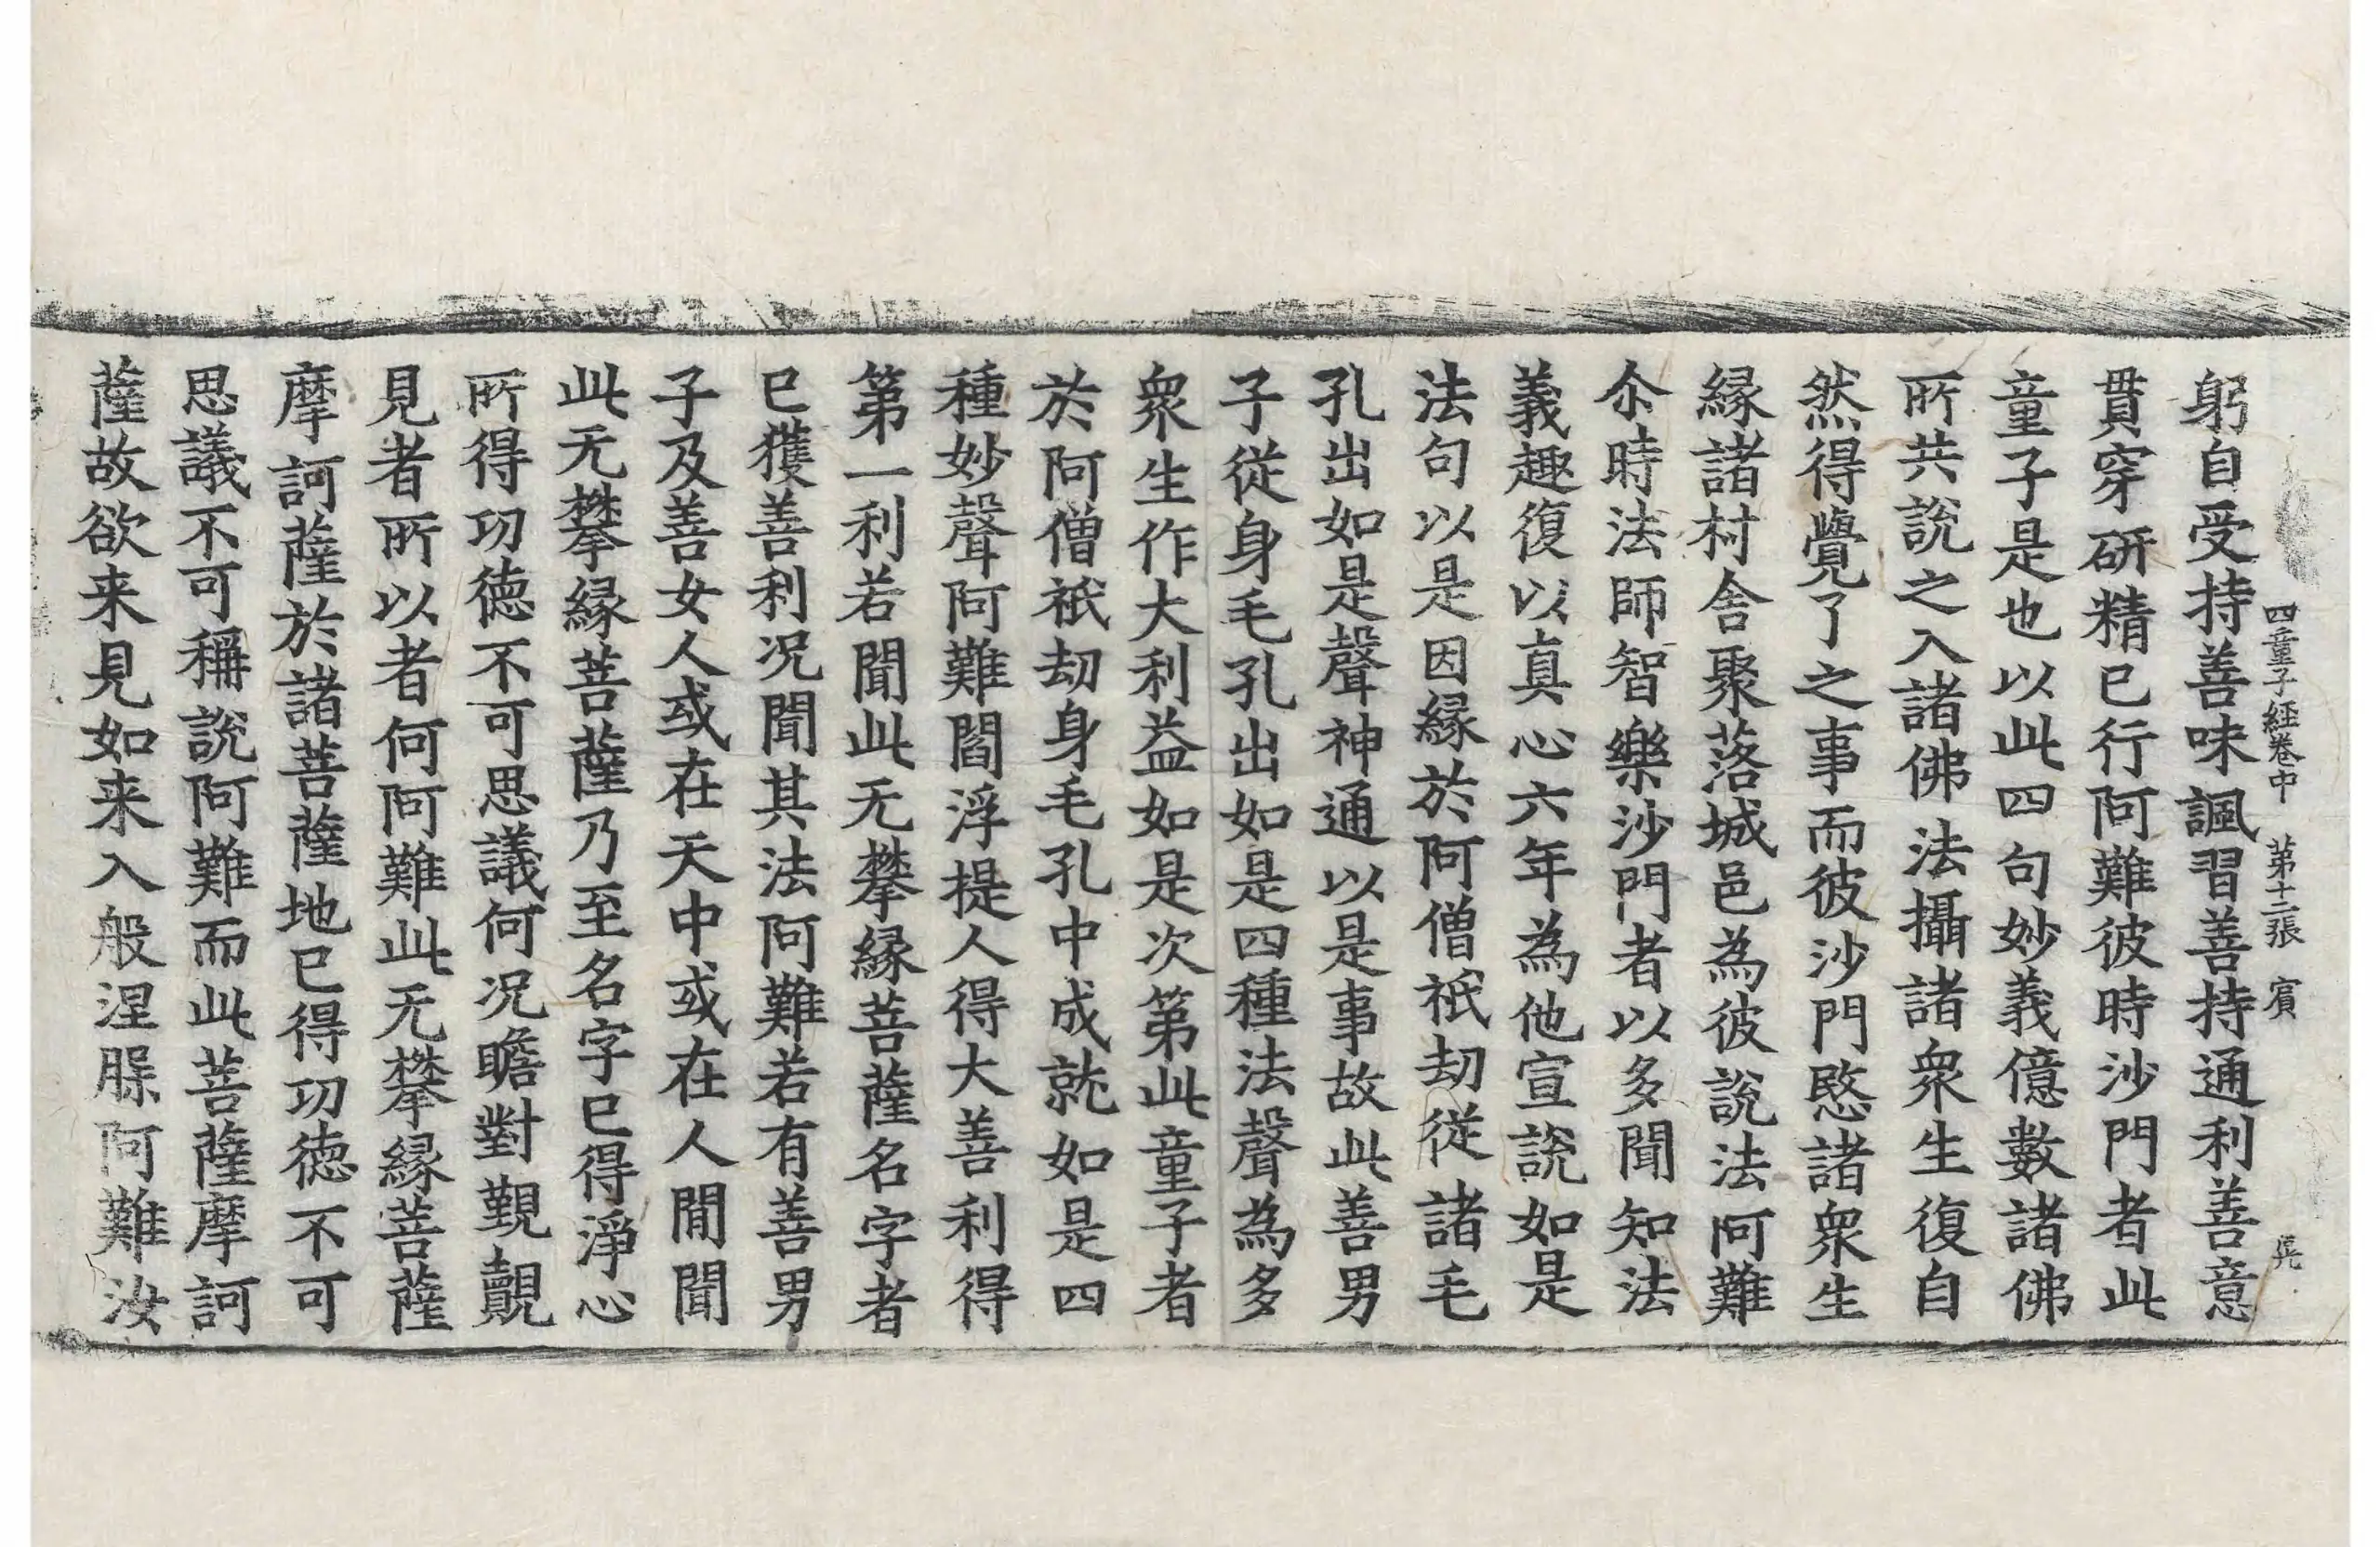 四童子經卷中 第十二張 賓
躬自受持善味諷習善持通利善意
貫穿研精已行阿難彼時沙門者此
童子是也以此四句妙義億數諸佛
所共說之入諸佛法攝諸衆生復自
然得覺了之事而彼沙門愍諸衆生
緣諸村舍聚落城邑為彼說法阿難
尒時法師智樂沙門者以多聞知法
義趣復以真心六年為他宣說如是
法句以是因緣於阿僧祇劫從諸毛
孔出如是聲神通以是事故此善男
子從身毛孔出如是四種法聲為多
衆生作大利益如是次第此童子者
於阿僧祇劫身毛孔中成就如是四
種妙聲阿難閻浮提人得大善利得
第一利若聞此无攀緣菩薩名字者
已獲善利况聞其法阿難若有善男
子及善女人或在天中或在人閒聞
此无攀緣菩薩乃至名字已得淨心
所得功德不可思議何况瞻對覲覩
見者所以者何阿難此无攀緣菩薩
摩訶薩於諸菩薩地已得功德不可
思議不可稱說阿難而此菩薩摩訶
薩故欲来見如来入般涅槃阿難汝